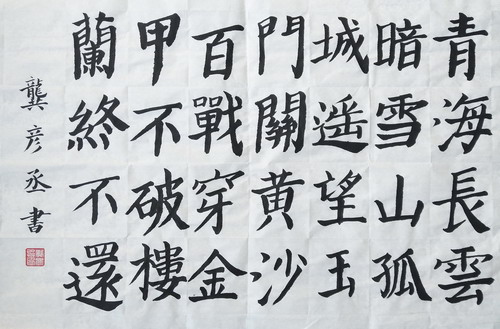 青海長雲
暗雪山孤
城遥望玉
門關黄沙
百戰穿金
甲不破樓
蘭終不還
龔彦丞書